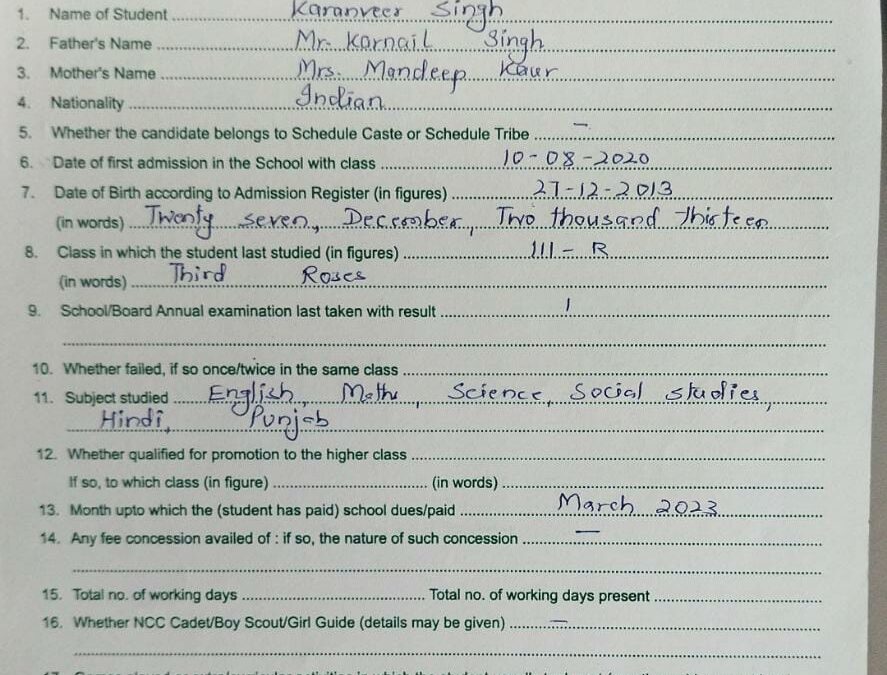 1. Name of Student Karanveer Singh
2. Father's Name Mr. Karnail Singh
3. Mother's Name Mrs. Mandeep Kaur
4. Nationality Indian
5. Whether the candidate belongs to Schedule Caste or Schedule Tribe —
6. Date of first admission in the School with class 10-08-2020
7. Date of Birth according to Admission Register (in figures) 27-12-2013
(in words) Twenty seven, December, Two thousand thirteen
8. Class in which the student last studied (in figures) III - R
(in words) Third Roses
9. School/Board Annual examination last taken with result
10. Whether failed, if so once/twice in the same class
11. Subject studied English, Maths, Science, Social studies,
Hindi, Punjab
12. Whether qualified for promotion to the higher class
If so, to which class (in figure) (in words)
13. Month upto which the (student has paid) school dues/paid March 2023
14. Any fee concession availed of : if so, the nature of such concession —
15. Total no. of working days Total no. of working days present
16. Whether NCC Cadet/Boy Scout/Girl Guide (details may be given) —